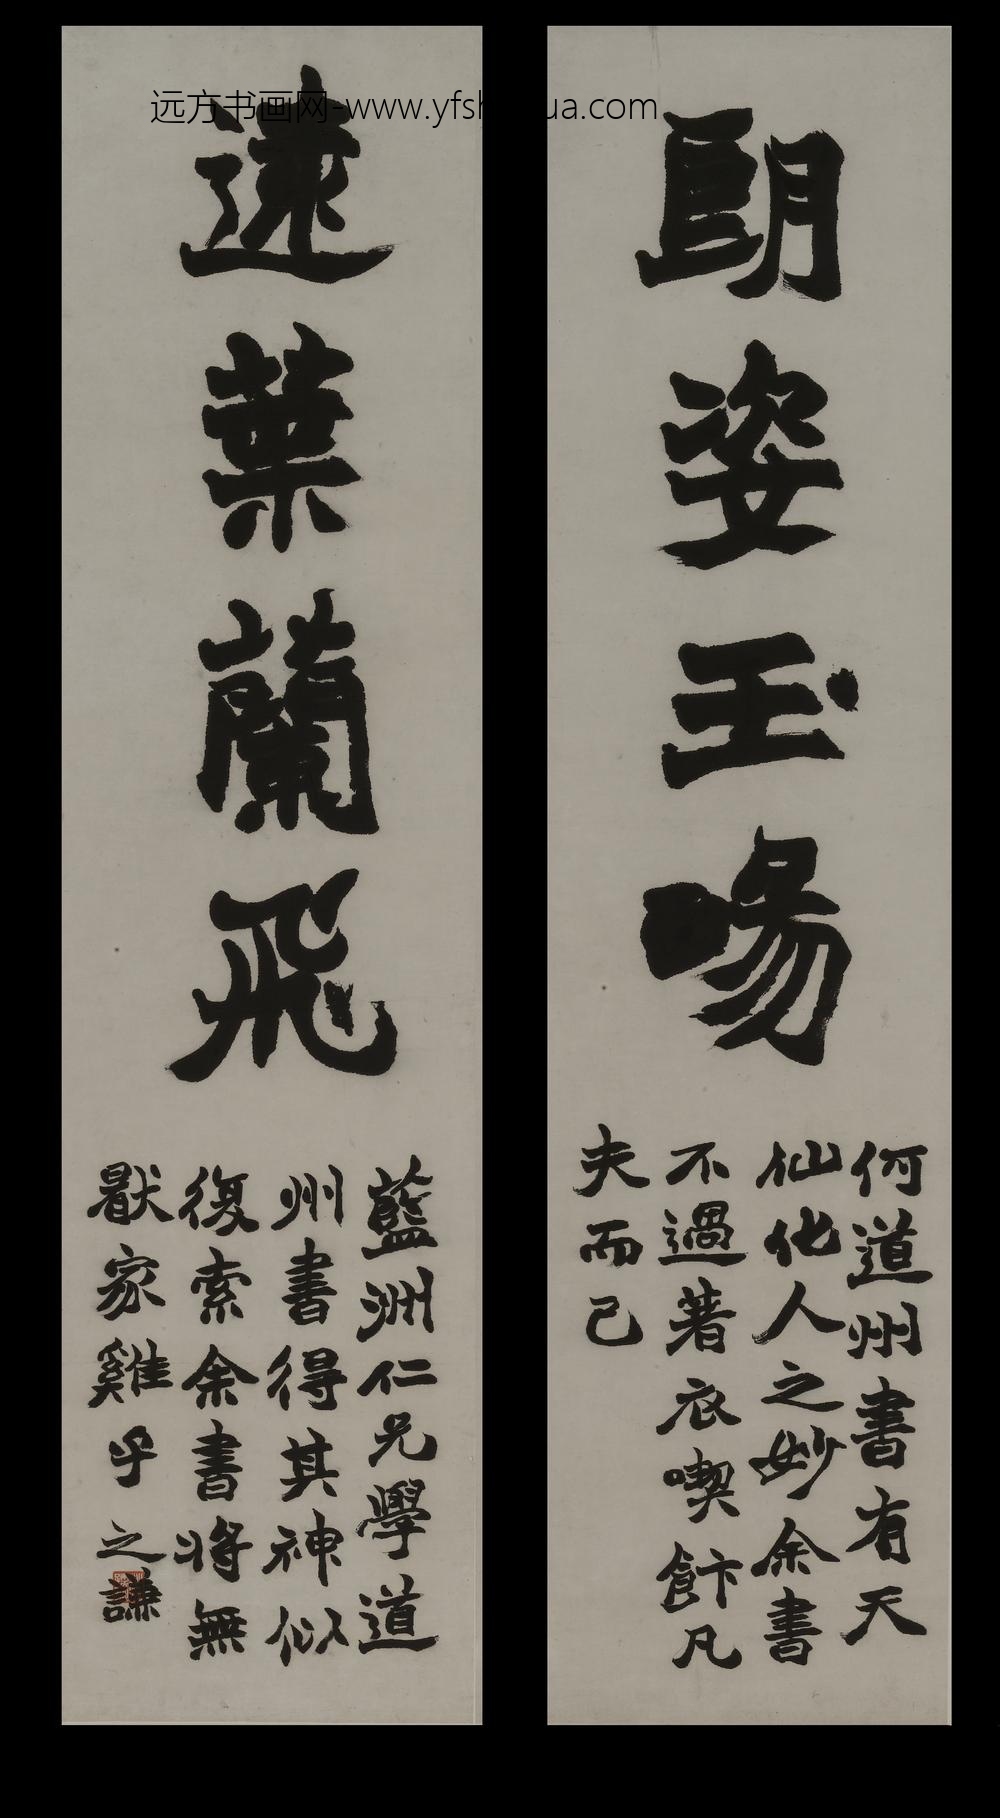 远方书画网-www.yfshuhua.com
朗姿玉畼
何道州書有天
仙化人之妙余書
不過著衣喫飰凡
夫而已
遠葉蘭飛
藍洲仁兄學道
州書得其神似
復索余書將無
猒家雞乎 之謙